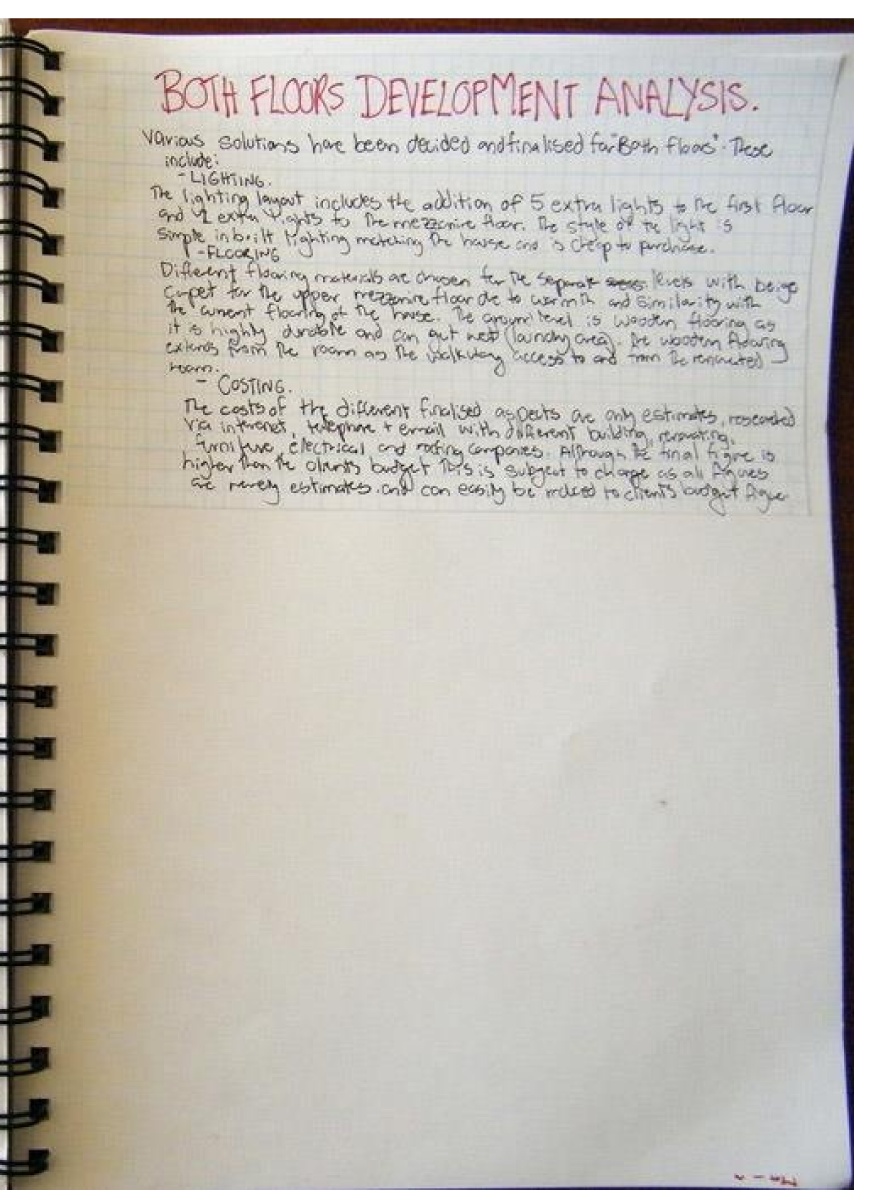 BOTH FLOORS DEVELOPMENT ANALYSIS.
Various solutions have been decided and finalised for "Both floors". These
include:
- LIGHTING.
The lighting layout includes the addition of 5 extra lights to the first floor
and 2 extra lights to the mezzanine floor. The style of the light is
simple inbuilt lighting matching the house and is cheap to purchase.
- FLOORING
Different flooring materials are chosen for the separate levels with beige
carpet for the upper mezzanine floor due to warmth and similarity with
the current flooring of the house. The ground level is wooden flooring as
it is highly durable and can get wet (laundry area). The wooden flooring
extends from the room as the walkway access to and from the renovated
room.
- COSTING.
The costs of the different finalised aspects are only estimates, researched
via internet, telephone + email with different building, renovating,
furniture, electrical and roofing companies. Although the final figure is
higher than the clients budget this is subject to change as all figures
are merely estimates and can easily be reduced to client's budget figure